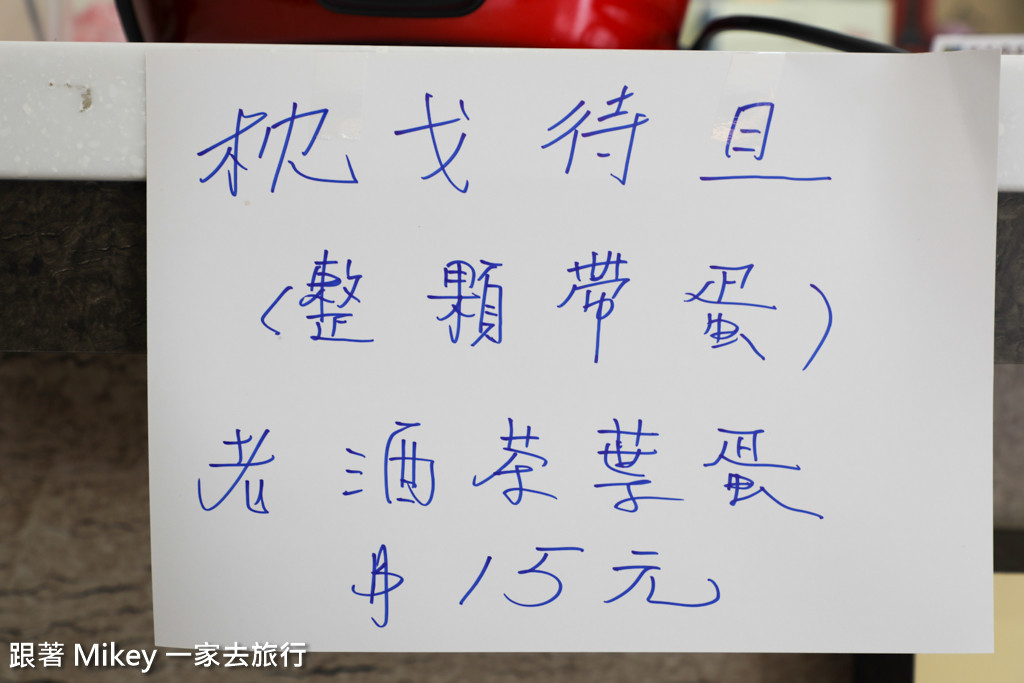 枕戈待旦
(整顆帶蛋)
老酒茶葉蛋
$15元
跟著 Mikey 一家去旅行